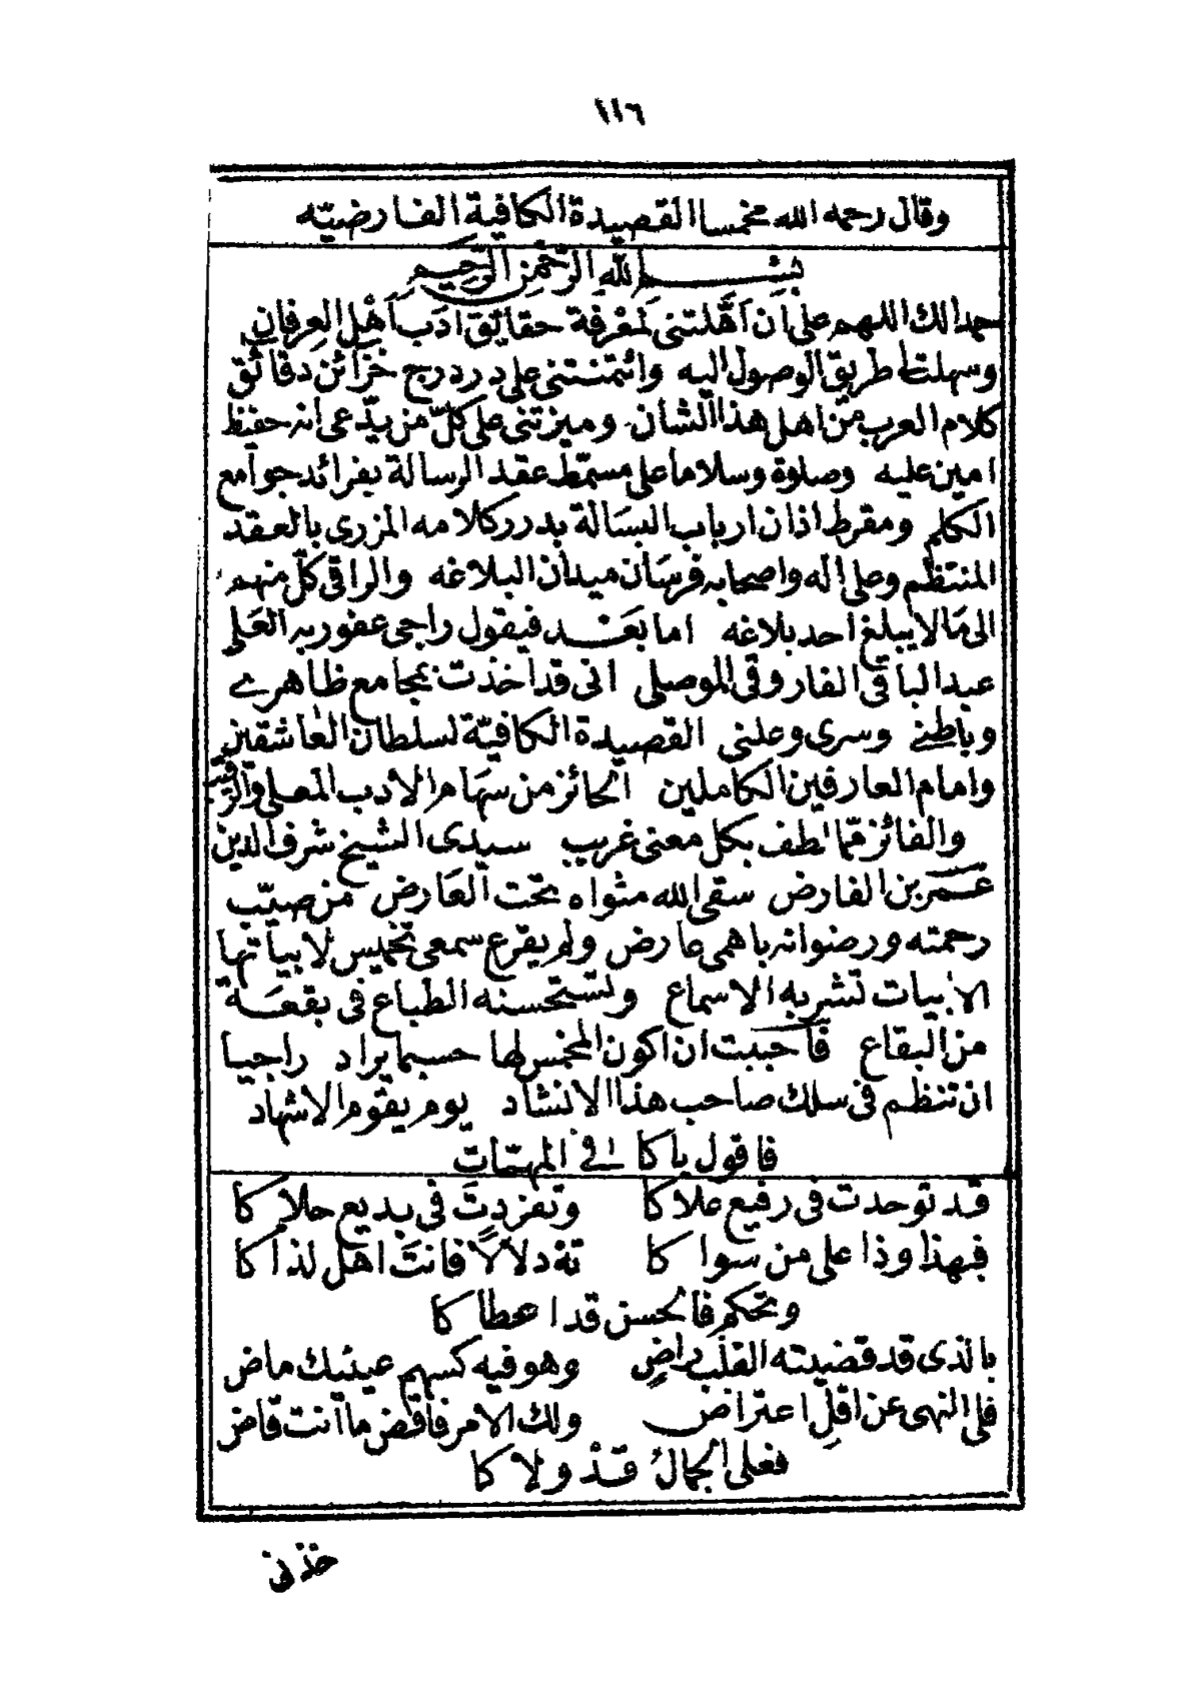 ١١٦
وقال رحمه الله مخمسا القصيدة الكافية الفارضيّه
بسم الله الرّحمن الرّحيم
حمدا لك اللهم على أن اهّلتنى لمعرفة حقائق ادب اهل العرفان
وسهلت طريق الوصول اليه وائتمنتنى على درر درج خزائن دقائق
كلام العرب من اهل هذا الشان وميزتنى على كلّ من يدّعى انه حفيظ
امين عليه وصلوة وسلاما على مسمّط عقد الرسالة بفرائد جوامع
الكلم ومقرط اذان ارباب البسالة بدرر كلامه المزرى بالعقد
المنتظم وعلى اله واصحابه فرسان ميدان البلاغه والراقى كلّ منهم
الى ما لا يبلغ احد بلاغه اما بعد فيقول راجى عفو ربه العلى
عبد الباقى الفاروقى الموصلى انى قد اخذت بمجامع ظاهرے
وباطنے وسرى وعلنى القصيدة الكافيّة لسلطان العاشقين
وامام العارفين الكاملين الحائز من سهام الادب المعلى والرقيب
والفائز ممّا لطف بكل معنى غريب سيدى الشيخ شرف الدين
عمر بن الفارض سقى الله مثواه تحت العارض من صيّب
رحمته ورضوانه باهمى عارض ولم يقرع سمعى تخميس لابياتها
الابيات تشربه الاسماع وتستحسنه الطباع فى بقعة
من البقاع فأحببت ان اكون المخمس لها حسبما يراد راجيا
ان تنظم فى سلك صاحب هذا الانشاد يوم يقوم الاشهاد
فاقول ياكافى المهمّات
قد توحدت فى رفيع علاكا وتفرّدت فى بديع حلاكا
فبهذا وذا على من سواكا ته دلالًا فانت اهل لذاكا
وتحكم فالحسن قد اعطاكا
بالذى قد قضيته القلب راضٍ وهو فيه كسهم عينيك ماض
فلى النهى عن اقلِ اعتراض ولك الامر فاقض ما انت قاض
فعلى الجمال قد ولاكا
خذنى